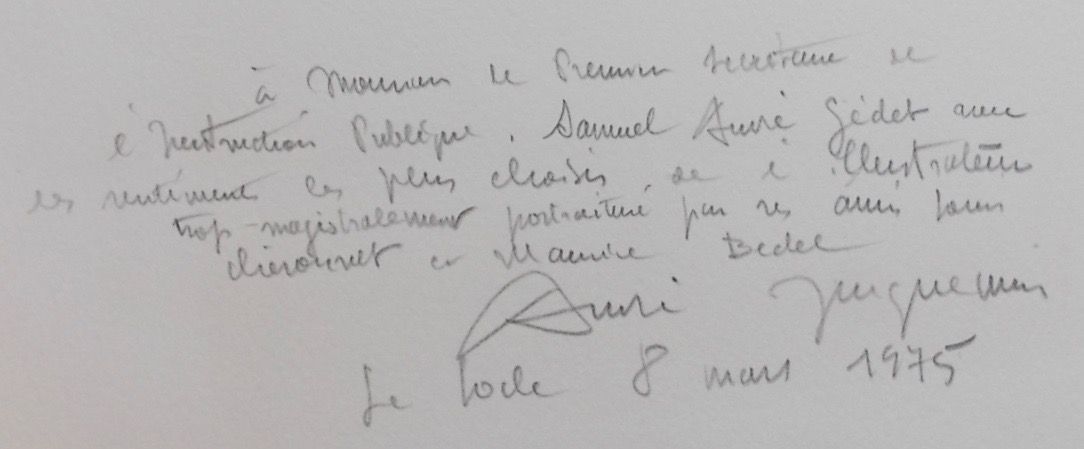 à Monsieur le Premier Secrétaire de
l'Instruction Publique, Samuel André Gédet avec
les sentiments les plus choisis, de l'illustrateur
trop magistralement portraituré par ses amis Louis
Chéronnet et Maurice Bedel
André Jacquemin
Le Locle 8 mars 1975